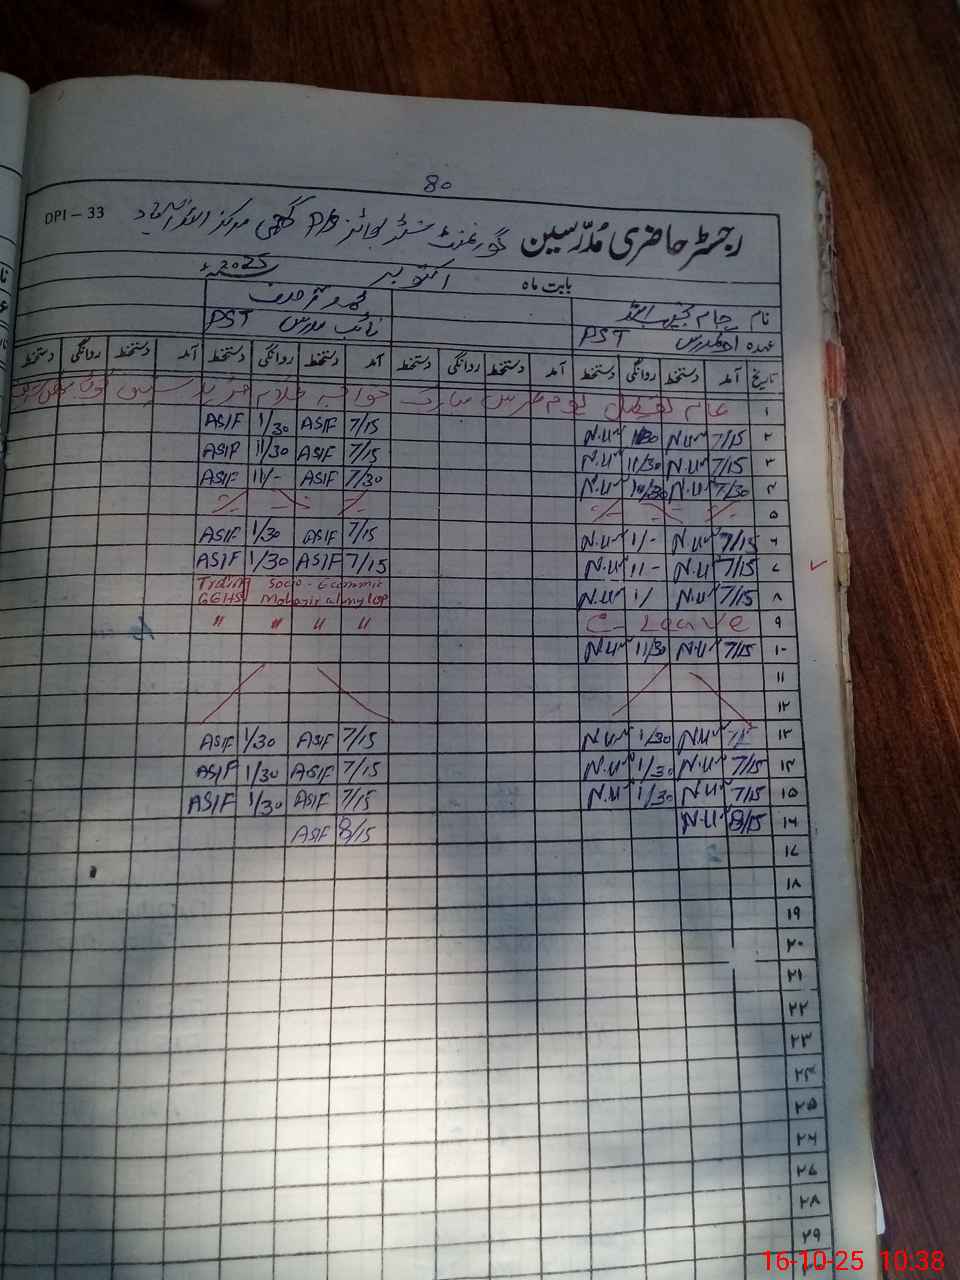 80
DPI - 33
رجسٹر حاضری مُدرّسین گورنمنٹ بوائز P/S مرکز
بابت ماہ اکتوبر 2025
نام جام
عہدہ PST نائب مدرس PST
تاریخ آمد دستخط روانگی دستخط آمد دستخط روانگی دستخط آمد دستخط روانگی دستخط آمد دستخط روانگی دستخط
۱ عام تعطیل یوم عرس مبارک خواجہ غلام فرید
۲ 7/15 N.U 1/30 N.U 7/15 ASIF 1/30 ASIF
۳ 7/15 N.U 11/30 N.U 7/15 ASIF 11/30 ASIF
۴ 7/30 N.U N.U 7/30 ASIF 11/- ASIF
۵
۶ 7/15 N.U 1/- N.U 7/15 ASIF 1/30 ASIF
۷ 7/15 N.U 11- N.U 7/15 ASIF 1/30 ASIF
۸ 7/15 N.U 1/ N.U Socio-Economic
GGHS
۹ C-Leave " " " "
۱۰ 7/15 N.U 11/30 N.U
۱۱
۱۲
۱۳ N.U 1/30 N.U 7/15 ASIF 1/30 ASIF
۱۴ 7/15 N.U 1/30 N.U 7/15 ASIF 1/30 ASIF
۱۵ 7/15 N.U 1/30 N.U 7/15 ASIF 1/30 ASIF
۱۶ 8/15 N.U 8/15 ASIF
۱۷
۱۸
۱۹
۲۰
۲۱
۲۲
۲۳
۲۴
۲۵
۲۶
۲۷
۲۸
۲۹
16-10-25 10:38